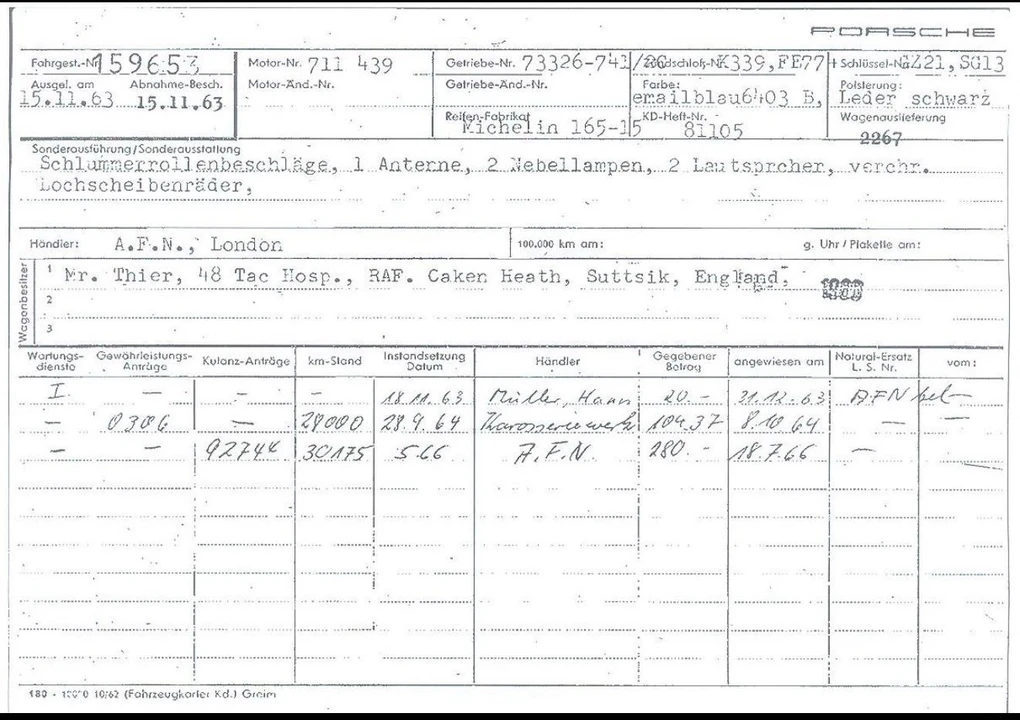 PORSCHE
Fahrgest.-Nr 159653 Motor-Nr. 711 439 Getriebe-Nr. 73326-741/ Zündschloß-Nr K339,FE77 + Schlüssel-Nr GZ21,SG13
Ausgel. am Abnahme-Besch. Motor-Änd.-Nr. Getriebe-Änd.-Nr. Farbe: Polsterung:
15.11.63 15.11.63 emailblau6403 B, Leder schwarz
Reifen-Fabrikat KD-Heft-Nr. Wagenauslieferung
Michelin 165-15 81105 2267
Sonderausführung/Sonderausstattung
Schlummerrollenbeschläge, 1 Anterne, 2 Nebellampen, 2 Lautsprcher, verchr.
Lochscheibenräder,
Händler: A.F.N., London 100.000 km am: g. Uhr / Plakette am:
Wagenbesitzer
1 Mr. Thier, 48 Tac Hosp., RAF. Caken Heath, Suttsik, England,
2
3
Wartungs-dienste Gewährleistungs-Anträge Kulanz-Anträge km-Stand Instandsetzung Datum Händler Gegebener Betrag angewiesen am Natural-Ersatz L. S. Nr. vom:
I — - - 18.11.63 Müller, Hann 20.- 31.12.63 AFN bel—
— 0306 — 28000 28.9.64 Karosseriewerk 104.37 8.10.64 — —
— — 92744 30175 5.66 A.F.N. 280.- 18.7.66 —
180 - 10/62 (Fahrzeugkartei Kd.) Greim